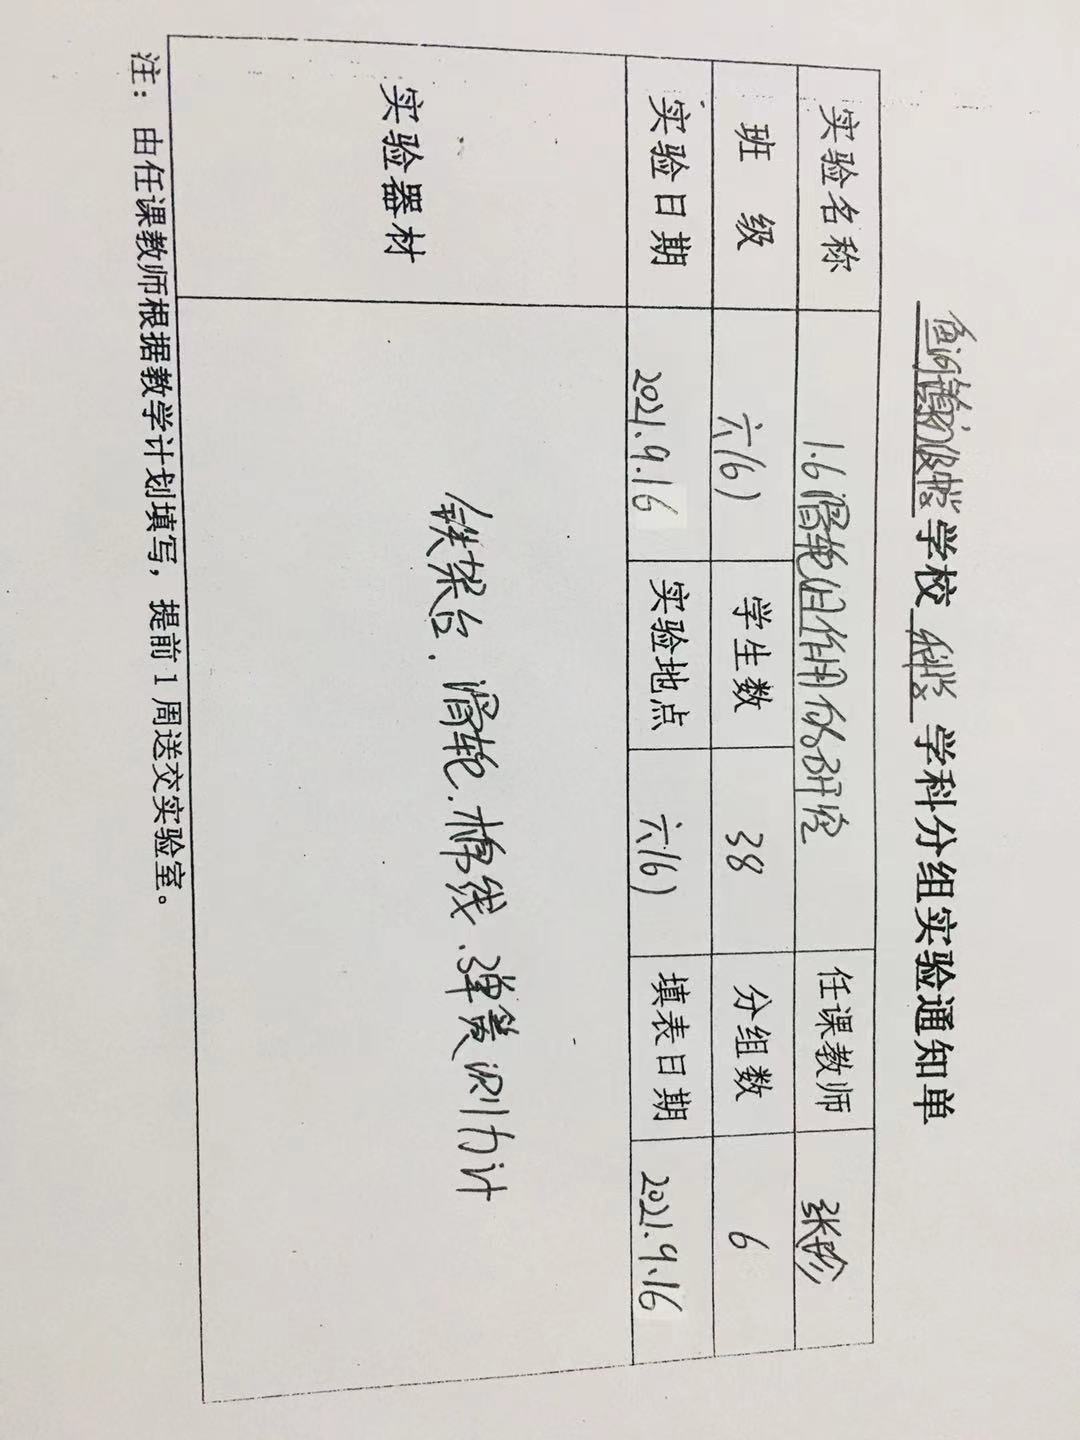 鱼河镇初级中学学校 科学 学科分组实验通知单
实验名称 1.6滑轮组作用的研究 任课教师 张珍
班 级 六(6) 学生数 38 分组数 6
实验日期 2021.9.16 实验地点 六(6) 填表日期 2021.9.16
实验器材 铁架台.滑轮.棉线.弹簧测力计
注：由任课教师根据教学计划填写，提前1周送交实验室。